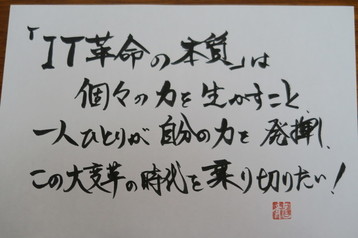 「IT革命の本質」は
個々の力を生かすこと、
一人ひとりが自分の力を発揮し、
この大変革の時代を乗り切りたい!